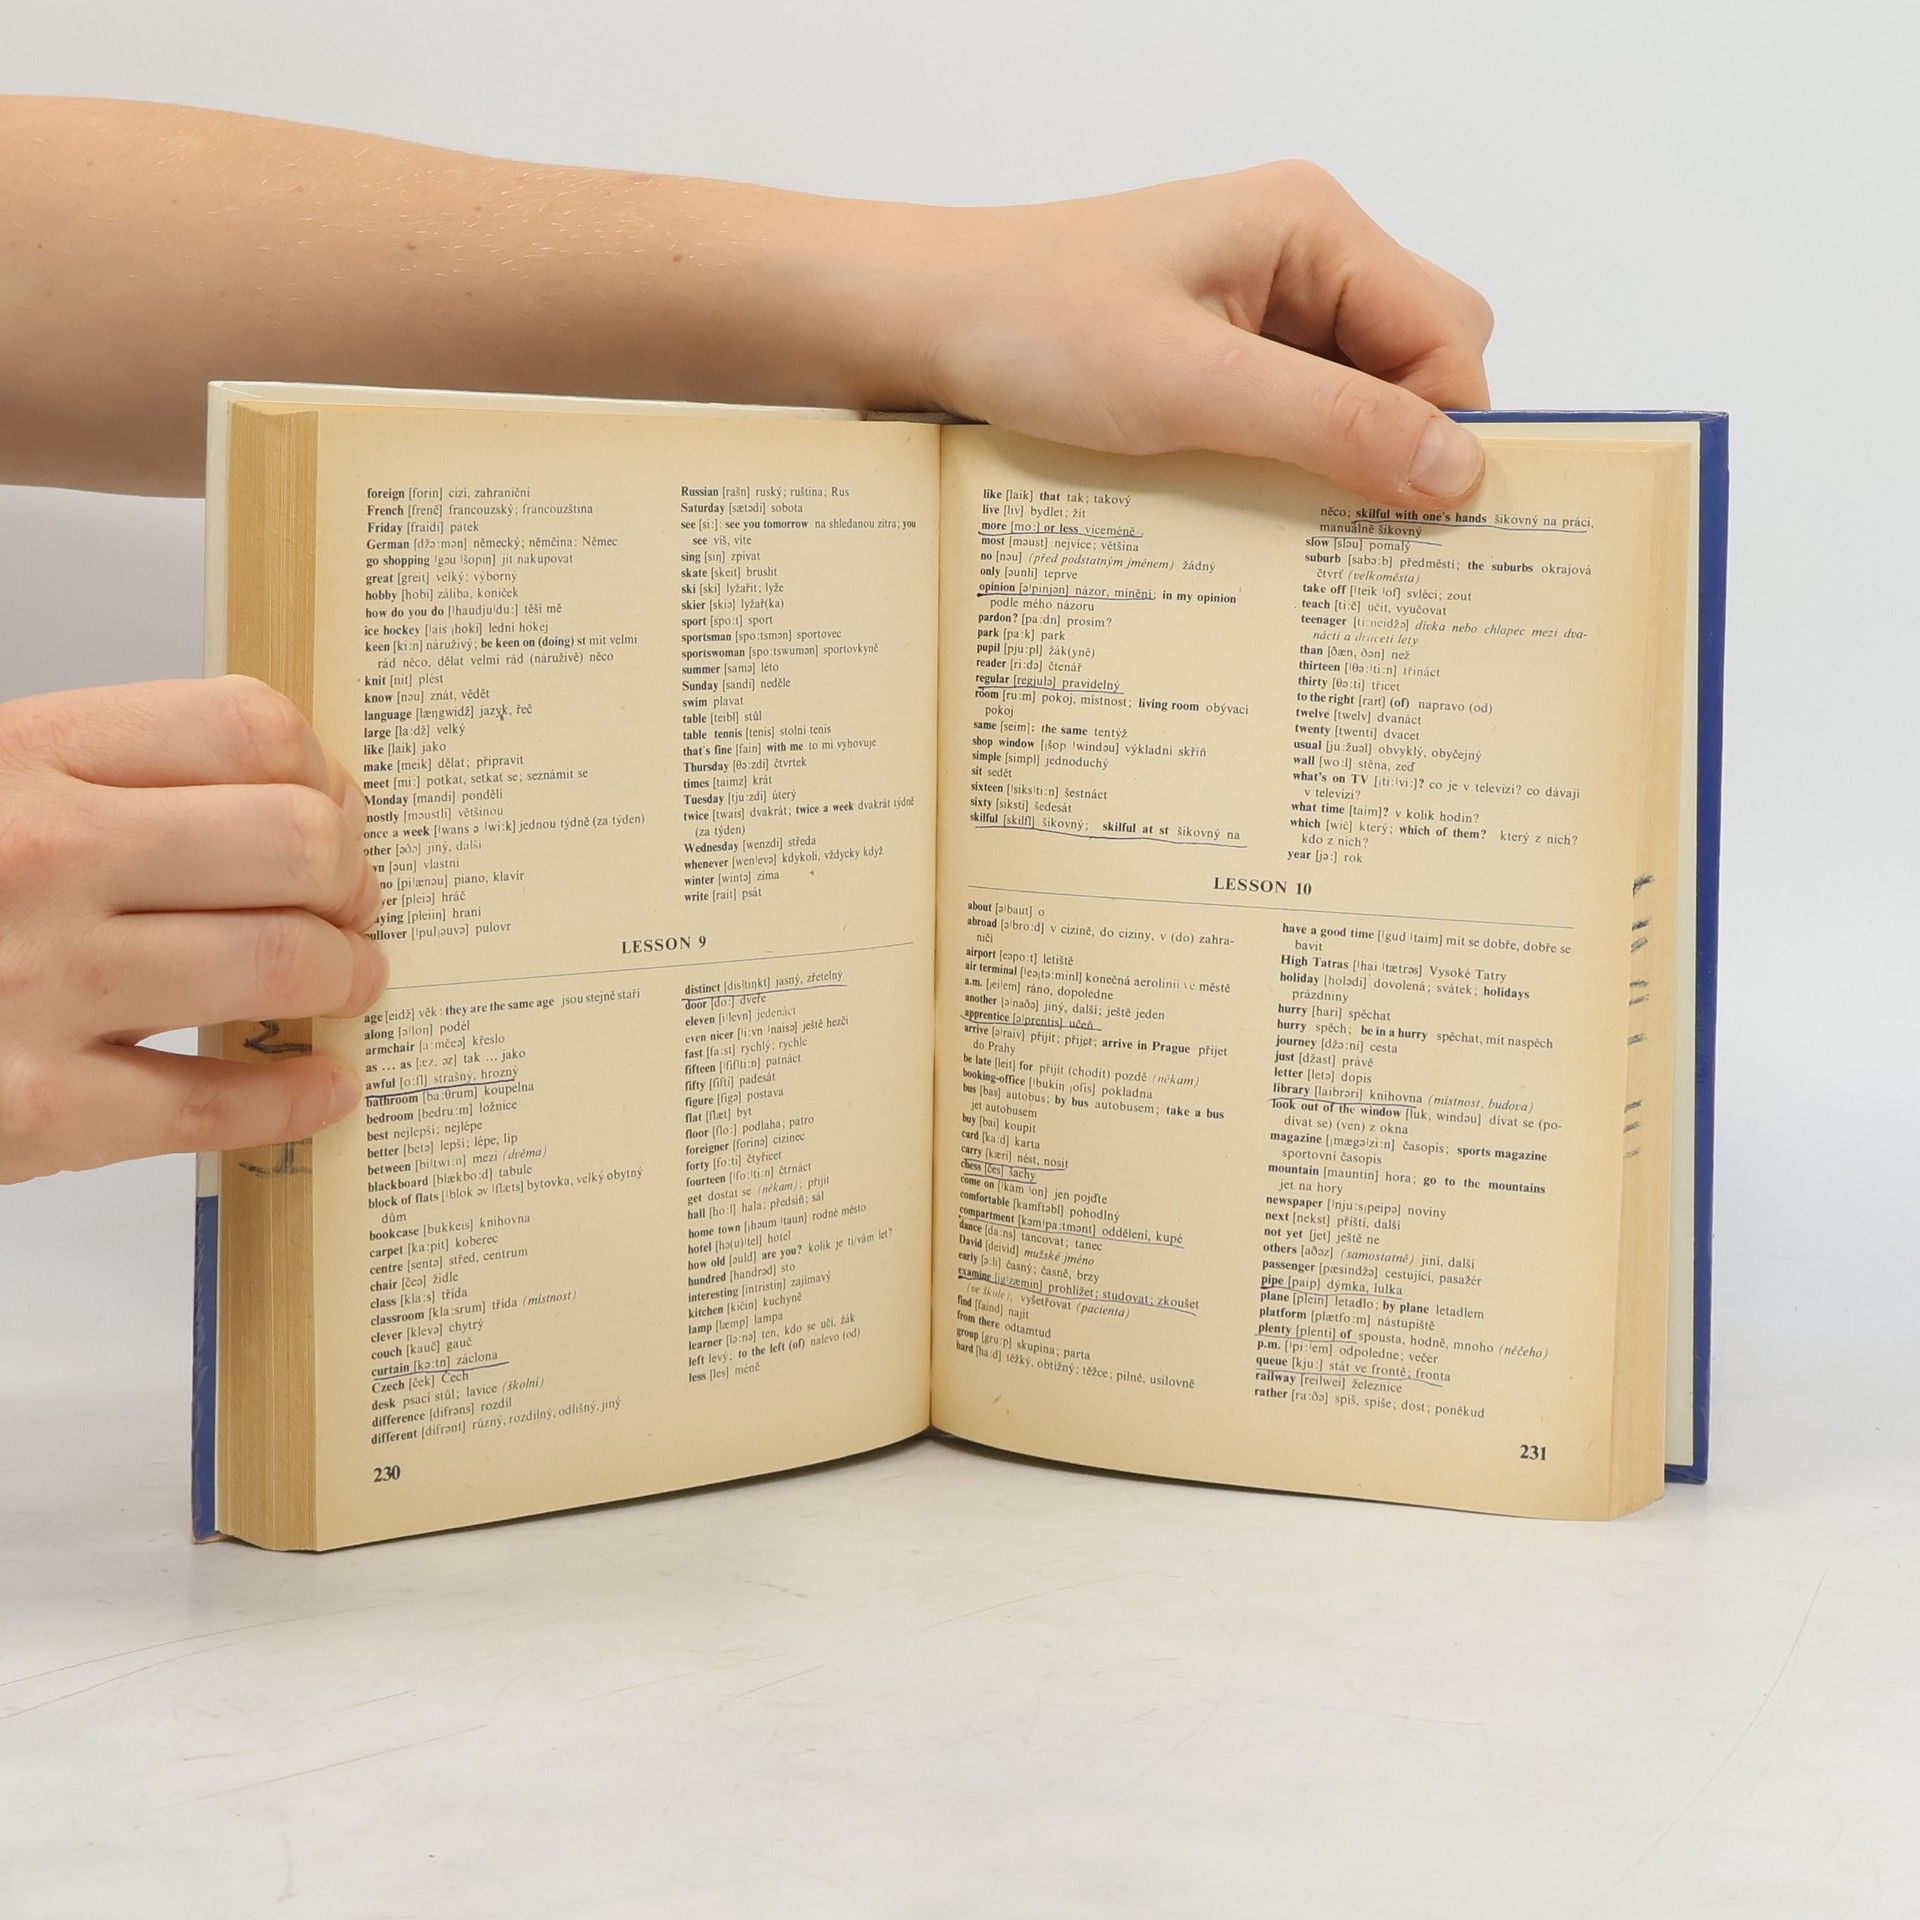 foreign [forin] cizí, zahraniční
French [frenč] francouzský; francouzština
Friday [fraidi] pátek
German [džə:mən] německý; němčina; Němec
go shopping [ˈgəu ˈšopiŋ] jít nakupovat
great [greit] velký; výborný
hobby [hobi] záliba, koníček
how do you do [ˈhaudjuˈdu:] těší mě
ice hockey [ˈais ˌhoki] lední hokej
keen [ki:n] náruživý; be keen on (doing) st mít velmi
rád něco, dělat velmi rád (náruživě) něco
knit [nit] plést
know [nəu] znát, vědět
language [læŋgwidž] jazyk, řeč
large [la:dž] velký
like [laik] jako
make [meik] dělat; připravit
meet [mi:] potkat, setkat se; seznámit se
Monday [mandi] pondělí
mostly [məustli] většinou
once a week [ˈwans ə ˈwi:k] jednou týdně (za týden)
other [aðə] jiný, další
[əun] vlastní
[piˈænəu] piano, klavír
[pleiə] hráč
[pleiiŋ] hraní
pullover [ˈpulˌəuvə] pulovr
Russian [rašn] ruský; ruština; Rus
Saturday [sætədi] sobota
see [si:]: see you tomorrow na shledanou zítra; you
see víš, víte
sing [siŋ] zpívat
skate [skeit] bruslit
ski [ski] lyžařit; lyže
skier [skiə] lyžař(ka)
sport [spo:t] sport
sportsman [spo:tsmən] sportovec
sportswoman [spo:tswumən] sportovkyně
summer [samə] léto
Sunday [sandi] neděle
swim plavat
table [teibl] stůl
table tennis [tenis] stolní tenis
that's fine [fain] with me to mi vyhovuje
Thursday [θə:zdi] čtvrtek
times [taimz] krát
Tuesday [tju:zdi] úterý
twice [twais] dvakrát; twice a week dvakrát týdně
(za týden)
Wednesday [wenzdi] středa
whenever [wenˈevə] kdykoli, vždycky když
winter [wintə] zima
write [rait] psát
LESSON 9
age [eidž] věk: they are the same age jsou stejně staří
along [əˈloŋ] podél
armchair [a:mčeə] křeslo
as ... as [æz, əz] tak ... jako
awful [o:fl] strašný, hrozný
bathroom [ba:θrum] koupelna
bedroom [bedru:m] ložnice
best nejlepší; nejlépe
better [betə] lepší; lépe, líp
between [biˈtwi:n] mezi (dvěma)
blackboard [blækbo:d] tabule
block of flats [ˈblok əv ˈflæts] bytovka, velký obytný
dům
bookcase [bukkeis] knihovna
carpet [ka:pit] koberec
centre [sentə] střed, centrum
chair [čeə] židle
class [kla:s] třída
classroom [kla:srum] třída (místnost)
clever [klevə] chytrý
couch [kauč] gauč
curtain [kə:tn] záclona
Czech [ček] Čech
desk psací stůl; lavice (školní)
difference [difrəns] rozdíl
different [difrənt] různý, rozdílný, odlišný, jiný
distinct [disˈtiŋkt] jasný, zřetelný
door [do:] dveře
eleven [iˈlevn] jedenáct
even nicer [i:vn ˈnaisə] ještě hezčí
fast [fa:st] rychlý; rychle
fifteen [ˈfifti:n] patnáct
fifty [fifti] padesát
figure [figə] postava
flat [flæt] byt
floor [flo:] podlaha; patro
foreigner [forinə] cizinec
forty [fo:ti] čtyřicet
fourteen [ˈfo:ˈti:n] čtrnáct
get dostat se (někam); přijít
hall [ho:l] hala; předsíň; sál
home town [ˌhəum ˈtaun] rodné město
hotel [hə(u)ˈtel] hotel
how old [əuld] are you? kolik je ti/vám let?
hundred [handrəd] sto
interesting [intristiŋ] zajímavý
kitchen [kičin] kuchyně
lamp [læmp] lampa
learner [lə:nə] ten, kdo se učí, žák
left levý; to the left (of) nalevo (od)
less [les] méně
230
like [laik] that tak; takový
live [liv] bydlet; žít
more [mo:] or less víceméně
most [məust] nejvíce; většina
no [nəu] (před podstatným jménem) žádný
only [əunli] teprve
opinion [əˈpinjən] názor, mínění; in my opinion
podle mého názoru
pardon? [pa:dn] prosím?
park [pa:k] park
pupil [pju:pl] žák(yně)
reader [ri:də] čtenář
regular [regjulə] pravidelný
room [ru:m] pokoj, místnost; living room obývací
pokoj
same [seim]: the same tentýž
shop window [ˌšop ˈwindəu] výkladní skříň
simple [simpl] jednoduchý
sit sedět
sixteen [ˈsiksˈti:n] šestnáct
sixty [siksti] šedesát
skilful [skilfl] šikovný; skilful at st šikovný na
něco; skilful with one's hands šikovný na práci,
manuálně šikovný
slow [sləu] pomalý
suburb [sabə:b] předměstí; the suburbs okrajová
čtvrť (velkoměsta)
take off [ˈteik ˈof] svléci; zout
teach [ti:č] učit, vyučovat
teenager [ti:neidžə] dívka nebo chlapec mezi dva-
nácti a dvaceti lety
than [ðæn, ðən] než
thirteen [ˈθə:ˈti:n] třináct
thirty [θə:ti] třicet
to the right [rait] (of) napravo (od)
twelve [twelv] dvanáct
twenty [twenti] dvacet
usual [ju:žuəl] obvyklý, obyčejný
wall [wo:l] stěna, zeď
what's on TV [ˌti:ˈvi:]? co je v televizi? co dávají
v televizi?
what time [taim]? v kolik hodin?
which [wič] který; which of them? který z nich?
kdo z nich?
year [jə:] rok
LESSON 10
about [əˈbaut] o
abroad [əˈbro:d] v cizině, do ciziny, v (do) zahra-
ničí
airport [eəpo:t] letiště
air terminal [ˈeəˌtə:minl] konečná aerolinií ve městě
a.m. [ˌeiˈem] ráno, dopoledne
another [əˈnaðə] jiný, další; ještě jeden
apprentice [əˈprentis] učeň
arrive [əˈraiv] přijít; přijet; arrive in Prague přijet
do Prahy
be late [leit] for přijít (chodit) pozdě (někam)
booking-office [ˈbukiŋ ˌofis] pokladna
bus [bas] autobus; by bus autobusem; take a bus
jet autobusem
buy [bai] koupit
card [ka:d] karta
carry [kæri] nést, nosit
chess [čes] šachy
come on [ˈkam ˈon] jen pojďte
comfortable [kamftəbl] pohodlný
compartment [kəmˈpa:tmənt] oddělení, kupé
dance [da:ns] tancovat; tanec
David [deivid] mužské jméno
early [ə:li] časný; časně, brzy
examine [igˈzæmin] prohlížet; studovat; zkoušet
(ve škole); vyšetřovat (pacienta)
find [faind] najít
from there odtamtud
group [gru:p] skupina; parta
hard [ha:d] těžký, obtížný; těžce; pilně, usilovně
have a good time [ˈgud ˈtaim] mít se dobře, dobře se
bavit
High Tatras [ˈhai ˈtætrəs] Vysoké Tatry
holiday [holədi] dovolená; svátek; holidays
prázdniny
hurry [hari] spěchat
hurry spěch; be in a hurry spěchat, mít naspěch
journey [džə:ni] cesta
just [džast] právě
letter [letə] dopis
library [laibrəri] knihovna (místnost, budova)
look out of the window [luk, windəu] dívat se (po-
dívat se) (ven) z okna
magazine [ˌmægəˈzi:n] časopis; sports magazine
sportovní časopis
mountain [mauntin] hora; go to the mountains
jet na hory
newspaper [ˈnju:sˌpeipə] noviny
next [nekst] příští, další
not yet [jet] ještě ne
others [aðəz] (samostatně) jiní, další
passenger [pæsindžə] cestující, pasažér
pipe [paip] dýmka, lulka
plane [plein] letadlo; by plane letadlem
platform [plætfo:m] nástupiště
plenty [plenti] of spousta, hodně, mnoho (něčeho)
p.m. [ˈpi:ˈem] odpoledne; večer
queue [kju:] stát ve frontě; fronta
railway [reilwei] železnice
rather [ra:ðə] spíš, spíše; dost; poněkud
231